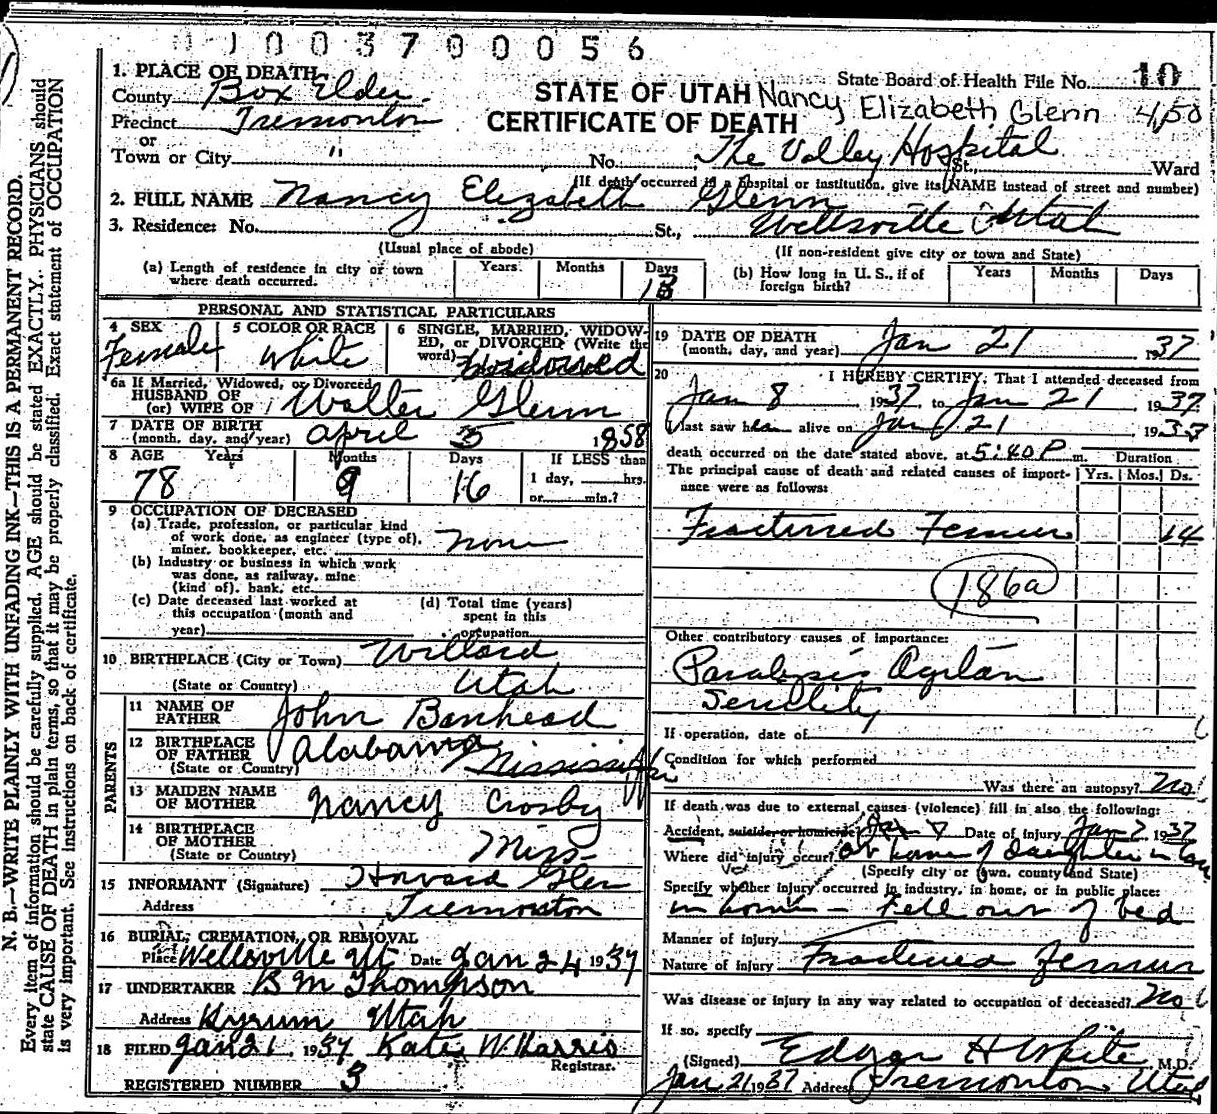 N. B.—WRITE PLAINLY WITH UNFADING INK—THIS IS A PERMANENT RECORD.
Every item of information should be carefully supplied. AGE should be stated EXACTLY. PHYSICIANS should
state CAUSE OF DEATH in plain terms, so that it may be properly classified. Exact statement of OCCUPATION
is very important. See instructions on back of certificate.
003700056
1. PLACE OF DEATH
County Box Elder
Precinct Tremonton
or
Town or City "
STATE OF UTAH
CERTIFICATE OF DEATH
State Board of Health File No. 10
Nancy Elizabeth Glenn 450
No. The Valley Hospital St., Ward
(If death occurred in a hospital or institution, give its NAME instead of street and number)
2. FULL NAME Nancy Elizabeth Glenn
3. Residence: No. St., Wellsville Utah
(Usual place of abode) (If non-resident give city or town and State)
(a) Length of residence in city or town where death occurred. Years Months Days 13
(b) How long in U. S., if of foreign birth? Years Months Days
PERSONAL AND STATISTICAL PARTICULARS
4 SEX Female
5 COLOR OR RACE White
6 SINGLE, MARRIED, WIDOWED, or DIVORCED (Write the word) Widowed
6a If Married, Widowed, or Divorced
HUSBAND OF
(or) WIFE OF Walter Glenn
7 DATE OF BIRTH
(month, day, and year) April 5 1858
8 AGE Years 78 Months 9 Days 16 If LESS than
1 day, hrs.
or min.?
9 OCCUPATION OF DECEASED
(a) Trade, profession, or particular kind
of work done, as engineer (type of),
miner, bookkeeper, etc. none
(b) Industry or business in which work
was done, as railway, mine
(kind of), bank, etc.
(c) Date deceased last worked at
this occupation (month and
year)
(d) Total time (years)
spent in this
occupation
10 BIRTHPLACE (City or Town) Willard
(State or Country) Utah
PARENTS
11 NAME OF
FATHER John Banhead
12 BIRTHPLACE
OF FATHER
(State or Country) Alabama Mississippi
13 MAIDEN NAME
OF MOTHER Nancy Crosby
14 BIRTHPLACE
OF MOTHER
(State or Country) Miss
15 INFORMANT (Signature) Howard Glen
Address Tremonton
16 BURIAL, CREMATION, OR REMOVAL
Place Wellsville Ut Date Jan 24 1937
17 UNDERTAKER B M Thompson
Address Hyrum Utah
18 FILED Jan 21 1937 Kate W. Harris
Registrar.
REGISTERED NUMBER 3
19 DATE OF DEATH
(month, day, and year) Jan 21 1937
20 I HEREBY CERTIFY, That I attended deceased from
Jan 8 1937 to Jan 21 1937
I last saw her alive on Jan 21 1937
death occurred on the date stated above, at 5:40 P m.
The principal cause of death and related causes of importance were as follows:
Duration
Yrs. Mos. Ds.
Fractured Femur 14
186a
Other contributory causes of importance:
Paralysis Agitan
Senility
If operation, date of
Condition for which performed
Was there an autopsy? No
If death was due to external causes (violence) fill in also the following:
Accident, suicide or homicide? Date of injury Jan 7 1937
Where did injury occur? at home of daughter in
(Specify city or town, county and State)
Specify whether injury occurred in industry, in home, or in public place:
in home - Fell out of bed
Manner of injury
Nature of injury Fractured Femur
Was disease or injury in any way related to occupation of deceased? No
If so, specify
(Signed) Edgar H White M.D.
Jan 21 1937 Address Tremonton Utah